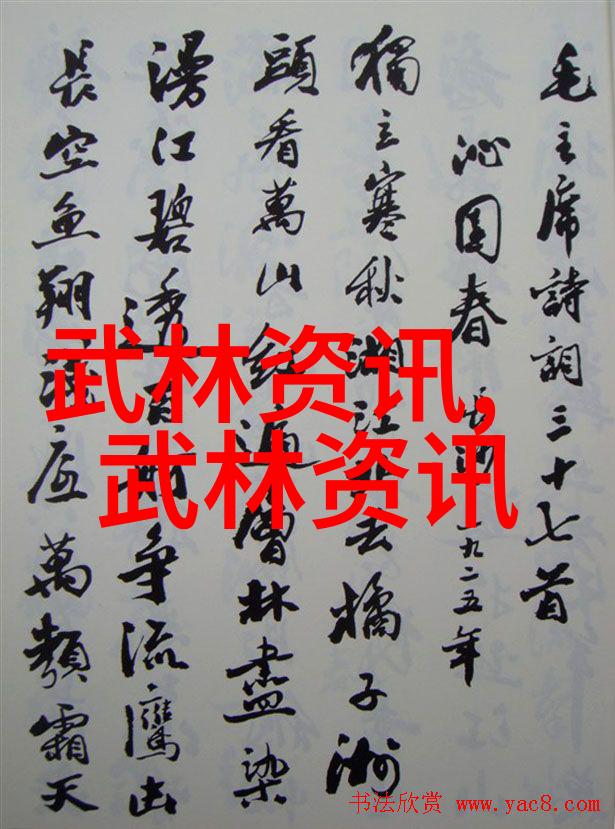 毛主席詩詞三十七首
沁园春 长沙 一九二五年
獨立寒秋湘江北去橘子洲
頭看萬山红遍層林盡染
漫江碧透百舸争流鷹击
長空鱼翔浅底萬類霜天
武林资讯,
武林资讯
书法欣赏 www.yac8.com